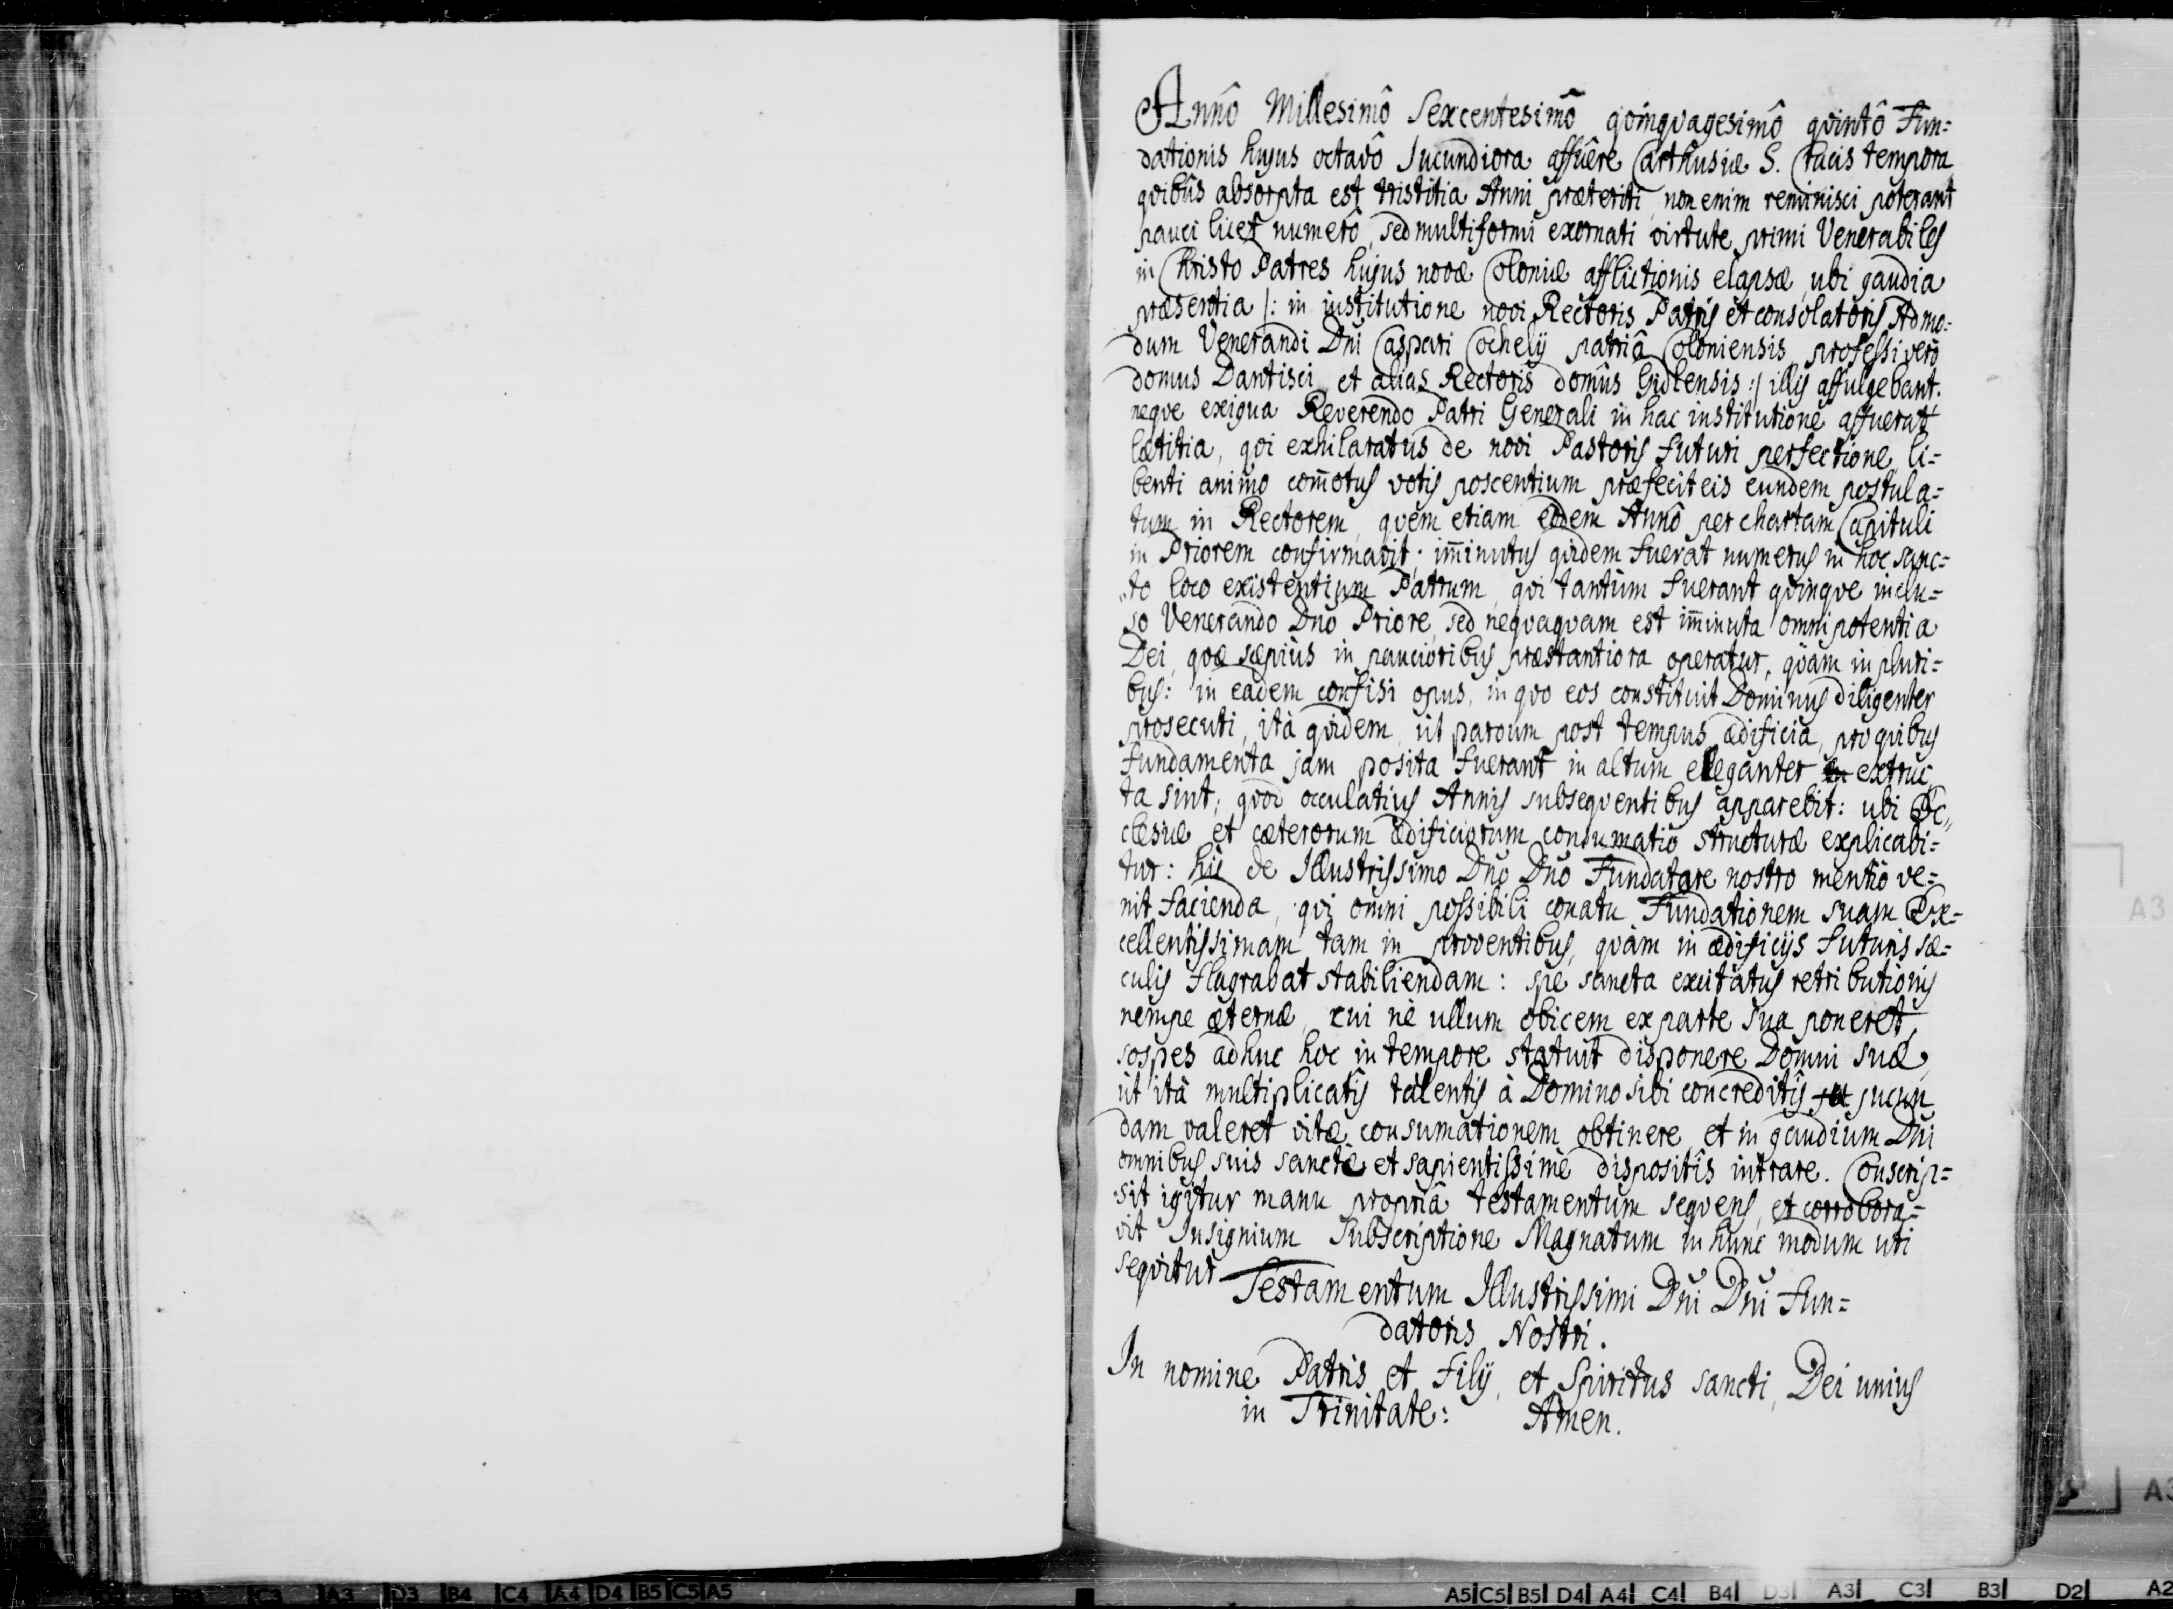 Annô Millesimô Sexcentesimô qvinqvagesimô qvintô Fun=
dationis hujus octavô Jucundiora affuêre Carthusiæ S. Crucis tempora
qvibus absorpta est tristitia Anni præteriti, non enim reminisci poterant
pauci licet numerô, sed multiformi exornati virtute primi Venerabiles
in Christo Patres hujus novæ Coloniæ afflictionis elapsæ, ubi gaudia
præsentia |: in institutione novi Rectoris Patris et consolatoris Admo=
dum Venerandi Dni Caspari Cochelij patriâ Coloniensis professi verò
domus Dantisci et aliàs Rectoris domûs Gidlensis :| illis affulgebant.
neqve exigua Reverendo Patri Generali in hac institutione affuerat
lætitia, qvi exhilaratus de novi Pastoris futuri perfectione, li=
benti animo com̄otus votis poscentium præfecit eis eundem postula=
tum in Rectorem, qvem etiam eodem Annô per chartam Capituli
in Priorem confirmavit; im̄inutus qvidem fuerat numerus in hoc sanc=
to loco existentium Patrum, qvi tantùm fuerant qvinqve inclu=
so Venerando Dno Priore, sed neqvaqvam est im̄inuta omnipotentia
Dei, qvæ sæpiùs in paucioribus præstantiora operatur, qvàm in pluri=
bus: in eâdem confisi opus, in qvo eos constituit Dominus diligenter
prosecuti, ità qvidem, ut parvum post tempus ædificia, pro qvibus
fundamenta jam posita fuerant in altum eleganter extruc
ta sint; qvod occulatius Annis subseqventibus apparebit: ubi Ec=
clesiæ et cæterorum ædificiorum consumatio structuræ explicabi=
tur: hîc de Illustrissimo Dno Dno Fundatore nostro mentio ve=
nit facienda, qvi omni possibili conatu Fundationem suam Ex=
cellentissimam tam in proventibus, qvàm in ædificijs futuris sæ=
culis flagrabat stabiliendam: spe sancta excitatus retributionis
nempe æternæ, cui nè ullum obicem ex parte sua poneret,
sospes adhuc hoc in tempore statuit disponere Domui suæ,
ut ità multiplicatis talentis à Domino sibi concreditis jucun
dam valeret vitæ consumationem obtinere et in gaudium Dni
omnibus suis sanctè et sapientissimè dispositîs intrare. Conscrip=
sit igitur manu propriâ testamentum seqvens, et corrobora=
vit Insignium Subscriptione Magnatum in hunc modum uti
seqvitur
Testamentum Illustrissimi Dni Dni Fun=
datoris Nostri.
In nomine Patris et Filij, et Spiritus sancti, Dei unius
in Trinitate: Amen.